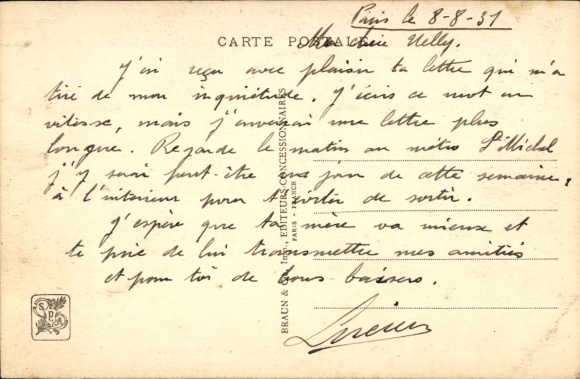 Paris le 8-8-31
CARTE POSTALE
Ma chère Nelly.
J'ai reçu avec plaisir ta lettre qui m'a
tiré de mon inquiétude. J'écris ce mot en
vitesse, mais j'enverrai une lettre plus
longue. Regarde le matin au métro St Michel
j'y serai peut-être un jour de cette semaine,
à l'intérieur pour de sortir.
J'espère que ta mère va mieux et
te prie de lui transmettre mes amitiés
et pour toi de bons baisers.
Lucien
BRAUN & Imp., EDITEURS-CONCESSIONNAIRES
PARIS - FRANCE